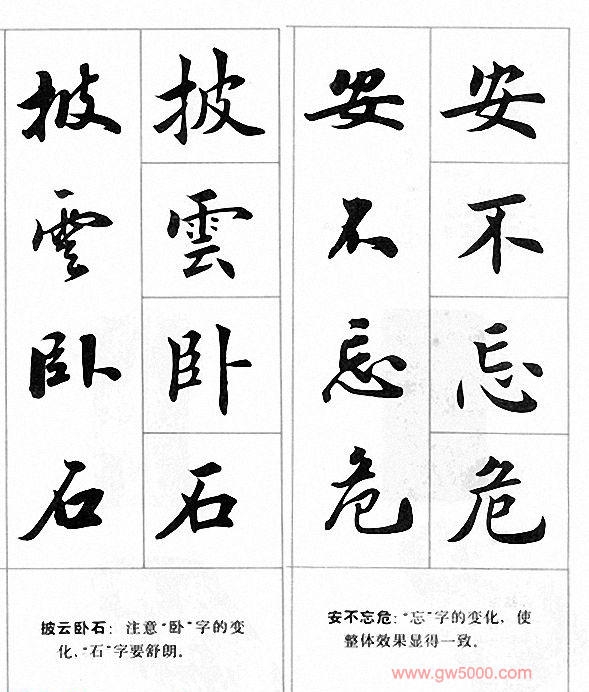 安不忘危
安不忘危
安不忘危：“忘”字的变化，使
整体效果显得一致。
披雲卧石
披雲卧石
披云卧石：注意“卧”字的变
化，“石”字要舒朗。
www.gw5000.com